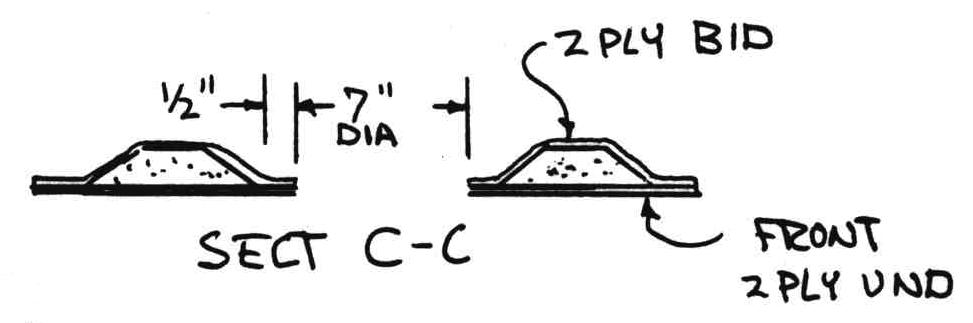 2 PLY BID
1/2" 7"
DIA
SECT C-C
FRONT
2 PLY UND